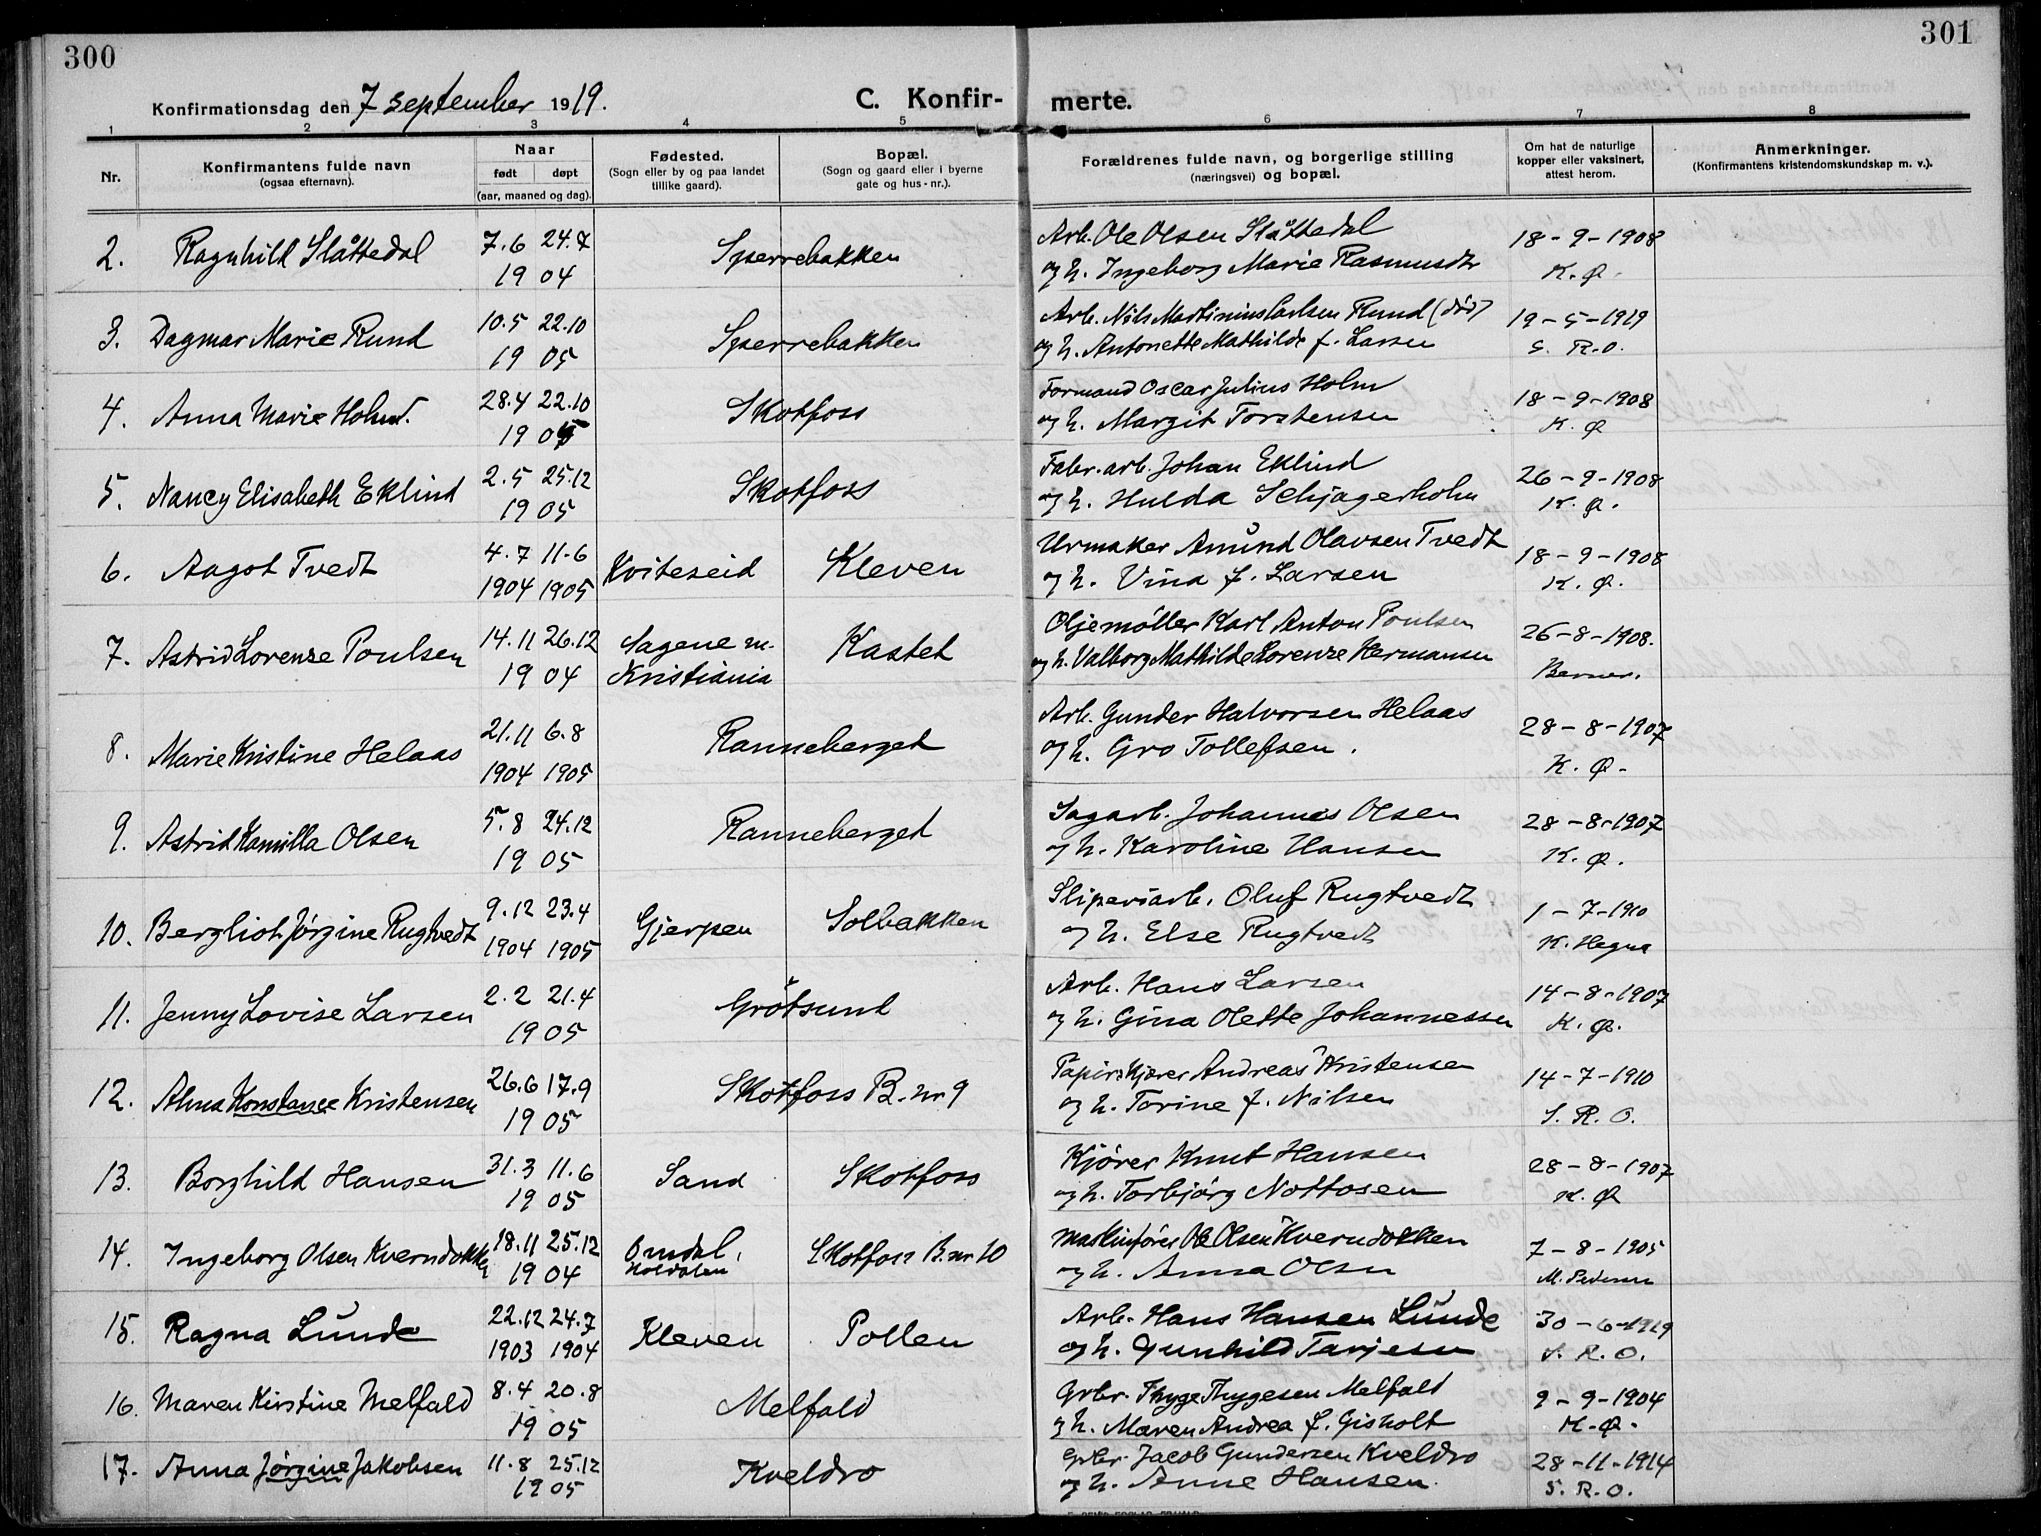 300
301
Konfirmationsdag den 7 september 1919.
C. Konfir-
merte.
1 2 3 4 5 6 7 8
Nr.
Konfirmantens fulde navn
(ogsaa efternavn).
Naar
født døpt
(aar, maaned og dag).
Fødested.
(Sogn eller by og paa landet
tillike gaard).
Bopæl.
(Sogn og gaard eller i byerne
gate og hus-nr.).
Forældrenes fulde navn, og borgerlige stilling
(næringsvei) og bopæl.
Om hat de naturlige
kopper eller vaksinert,
attest herom.
Anmerkninger.
(Konfirmantens kristendomskundskap m. v.).
2. Ragnhild Slåttedal 7.6 24.7 Sperrebakken Arb. Ole Olsen Slåttedal 18-9-1908
19 04 og h. Ingeborg Marie Rasmusdtr K. Ø.
3. Dagmar Marie Rund 10.5 22.10 Sperrebakken Arb. Nils Martinius Carlsen Rund (død) 19-5-1919
19 05 og h. Antonette Mathilde f. Larsen S. R. O.
4. Anna Marie Holm. 28.4 22.10 Skotfoss Formand Oscar Julius Holm 18-9-1908
19 05 og h. Margit Torstensen K. Ø
5. Nancy Elisabeth Eklind 2.5 25.12 Skotfoss Fabr. arb. Johan Eklind 26-9-1908
19 05 og h. Hulda Schjagerholm K. Ø.
6. Aagot Tvedt 4.7 11.6 Kviteseid Kleven Urmaker Amund Olavsen Tvedt 18-9-1908
1904 1905 og h. Vina f. Larsen K. Ø.
7. Astrid Lorenze Poulsen 14.11 26.12 Sagene m. Kastet Oljemøller Karl Anton Poulsen 26-8-1908.
19 04 Kristiania og h. Valborg Mathilde Lorenze Hermansen Berner.
8. Marie Kristine Helaas 21.11 6.8 Ranneberget Arb. Gunder Halvorsen Helaas 28-8-1907
1904 1905 og h. Gro Tollefsen. K. Ø.
9. Astrid Kamilla Olsen 5.8 24.12 Ranneberget Sagarb. Johannes Olsen 28-8-1907
19 05 og h. Karoline Hansen K. Ø.
10. Bergliot Jørgine Rugtvedt 9.12 23.4 Gjerpen Solbakken Sliperiarb. Oluf Rugtvedt 1-7-1910
1904 1905 og h. Else Rugtvedt K. Hegna
11. Jenny Lovise Larsen 2.2 21.4 Grötsund Arb. Hans Larsen 14-8-1907
19 05 og h. Gina Olette Johannessen K. Ø.
12. Alma Konstance Kristensen 26.6 17.9 Skotfoss B. nr 9 Papirskjærer Andreas Kristensen 14-7-1910
19 05 og h. Torine f. Nilsen S. R. O.
13. Borghild Hansen 31.3 11.6 Sand Skotfoss Kjører Knut Hansen 28-8-1907
19 05 og h. Torbjörg Nottosen K. Ø
14. Ingeborg Olsen Kverndokken 18.11 25.12 Omdal, Skotfoss B. nr 10 Maskinfører Ole Olsen Kverndokken 7-8-1905
19 04 Holdalen og h. Anna Olsen M. Pedersen
15. Ragna Lunde 22.12 24.7 Kleven Pollen Arb. Hans Hansen Lunde 30-6-1919
1903 1904 og h. Gunhild Tarjesen S. R. O.
16. Maren Kirstine Melfald 8.4 20.8 Melfald Grbr. Thyge Thygesen Melfald 9-9-1904
19 05 og h. Maren Andrea f. Gisholt K. Ø.
17. Anna Jørgine Jakobsen 11.8 25.12 Kveldro Grbr. Jacob Gundersen Kveldro 28-11-1914
19 05 og h. Anne Hansen S. R. O.